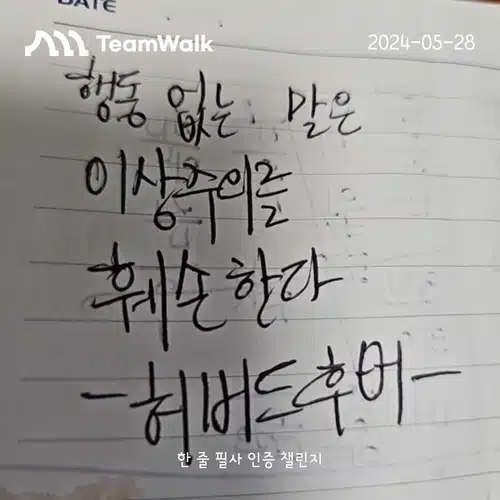 DATE
TeamWalk
2024-05-28
행동 없는 말은
이상주의를
훼손한다
-허버드후버-
한 줄 필사 인증 챌린지